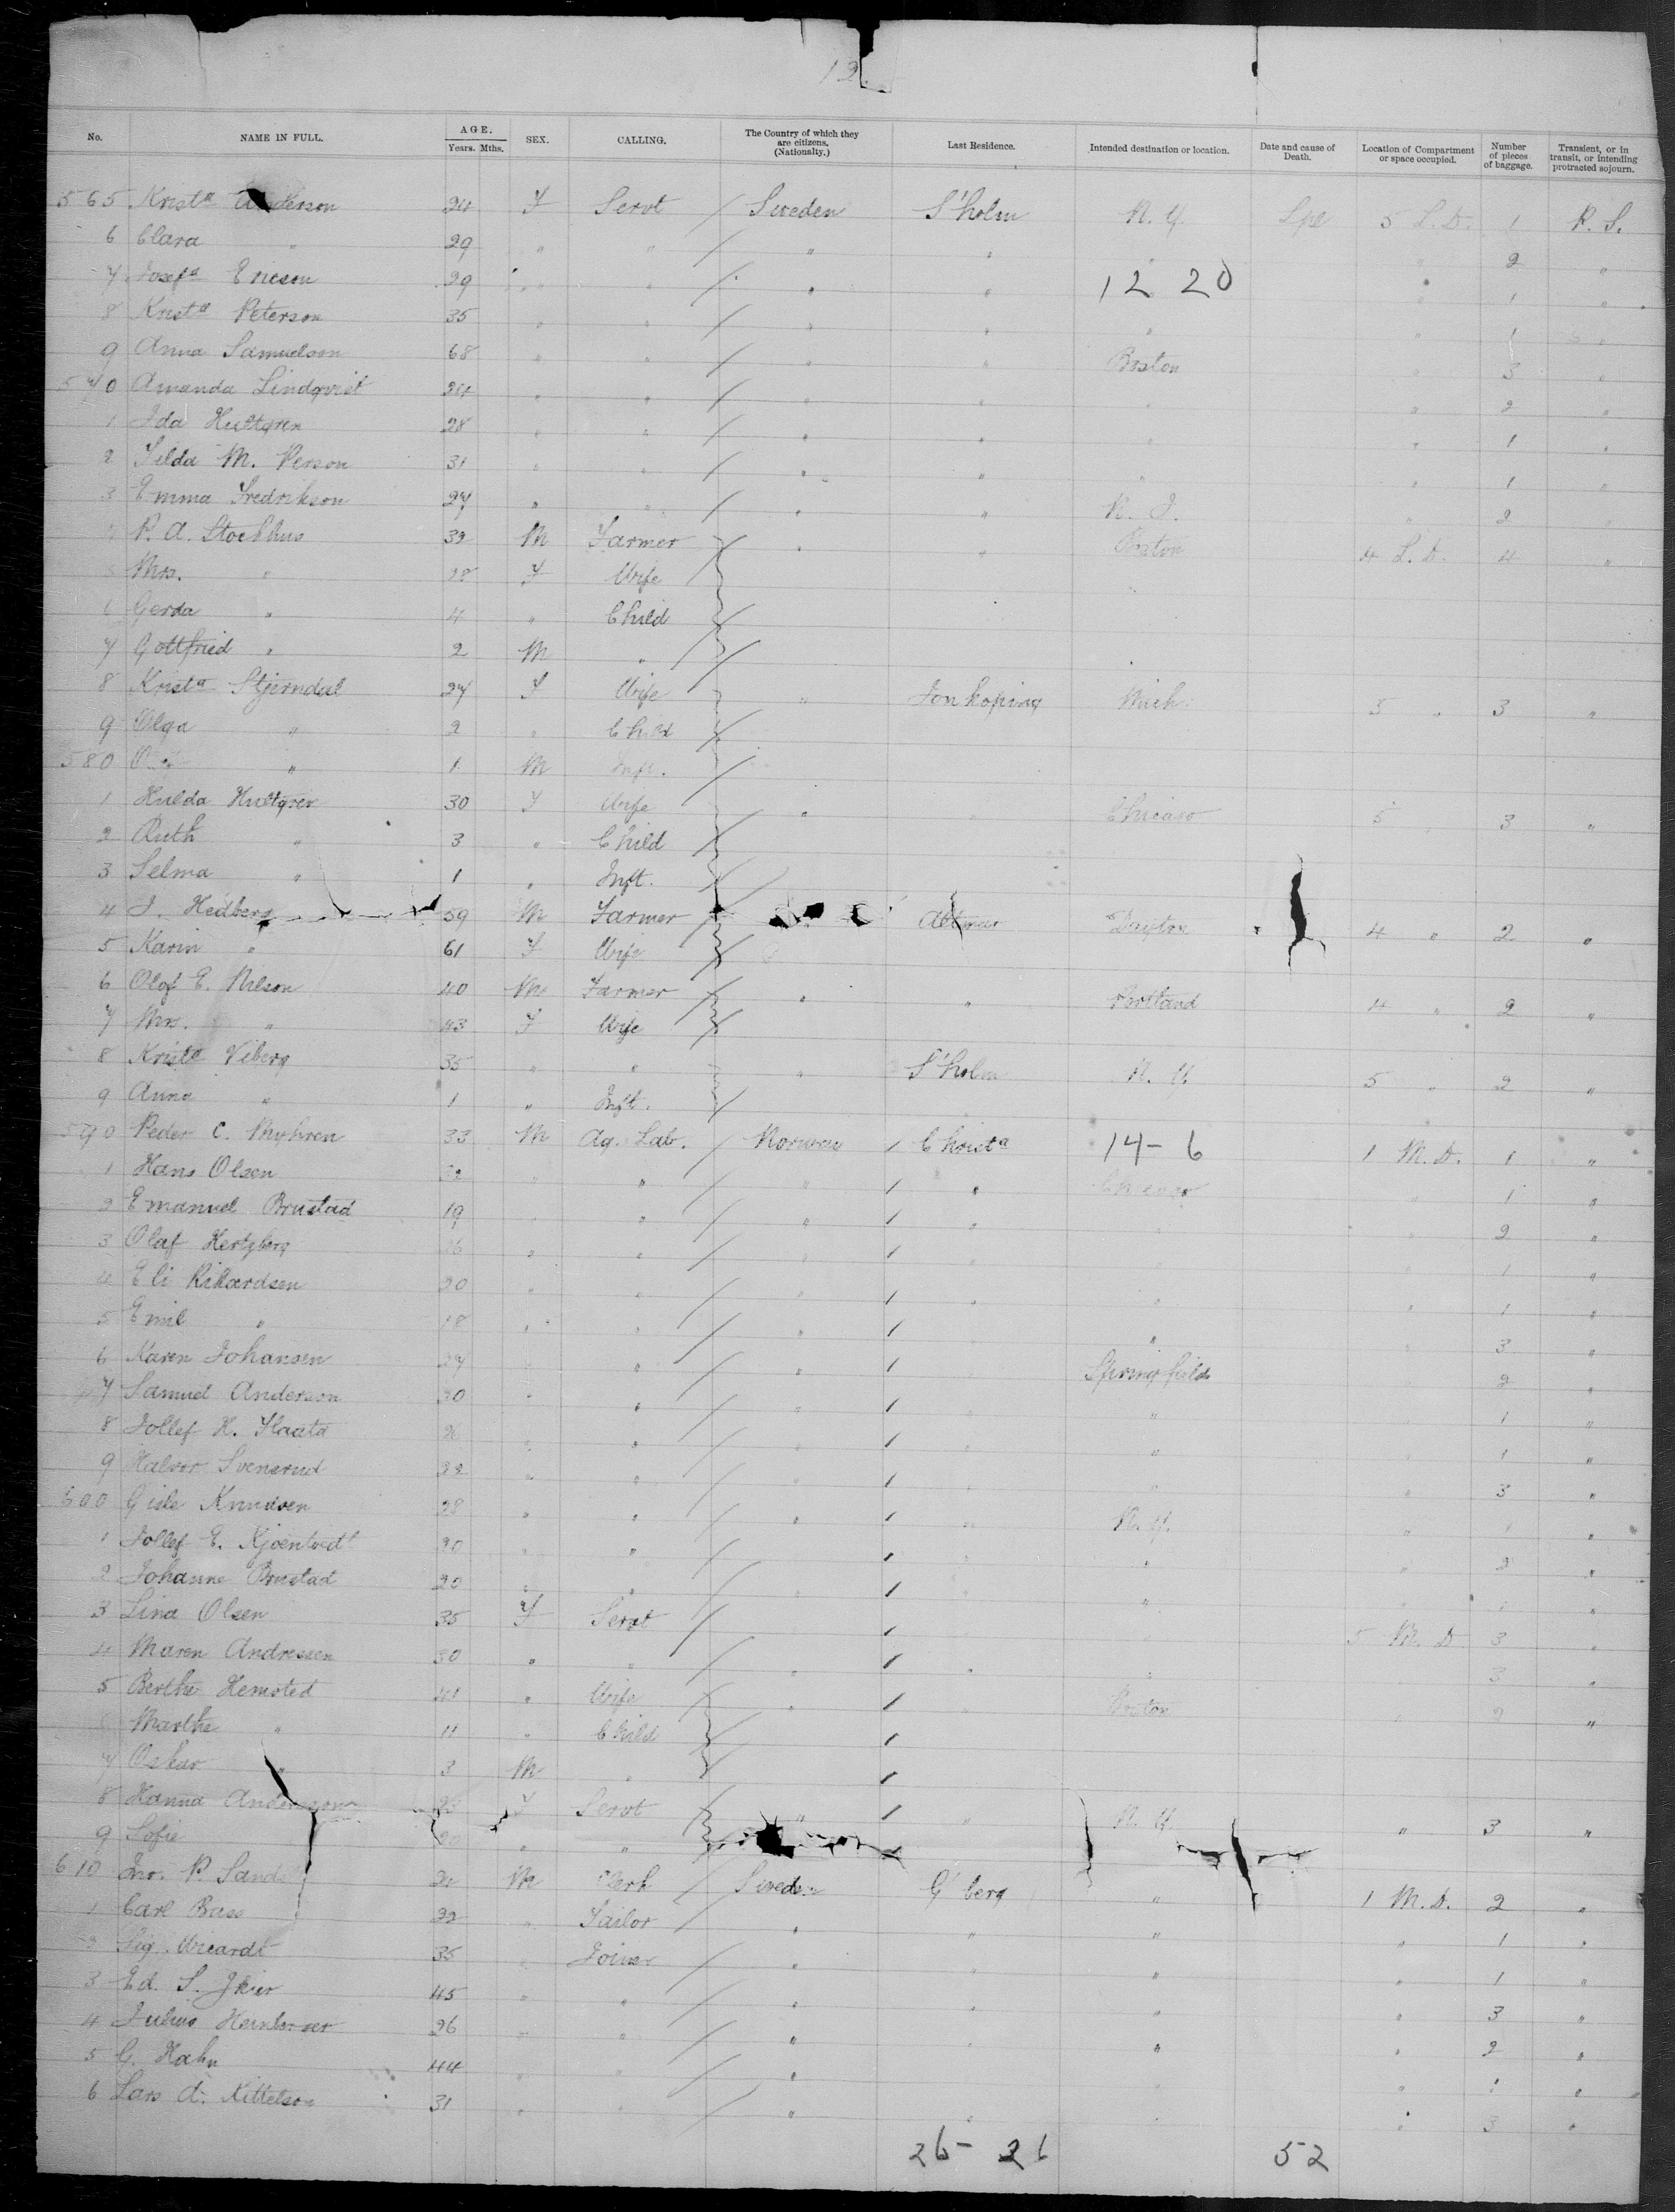 12
No. NAME IN FULL. AGE. Years. Mths. SEX. CALLING. The Country of which they are citizens. (Nationalty.) Last Residence. Intended destination or location. Date and cause of Death. Location of Compartment or space occupied. Number of pieces of baggage. Transient, or in transit, or intending protracted sojourn.
565 Krista Anderson 24 F Servt / Sweden S'holm N.Y. Lpl 5 L.D. 1 P.S.
6 Clara " 29 " " / " " " 2 "
7 Josefa Ericson 29 " " / " " 12 20 " 1 "
8 Krista Peterson 35 " " / " " " " 1 "
9 Anna Samuelson 68 " " / " " Boston " 3 "
570 Amanda Lindqvist 24 " " / " " " " 2 "
1 Ida Hultgren 28 " " / " " " " 1 "
2 Tilda M. Person 31 " " / " " " " 1 "
3 Emma Fredrikson 27 " " / " " " 2 "
P. A. 39 M Farmer / " " Boston 4 L.D. 4 "
Mrs. " 28 F Wife
6 Gerda " 4 " Child /
7 Gottfried " 2 M " /
8 Krista Stjerndal 27 F Wife " Jonkoping Mich. 5 " 3 "
9 Olga " 2 " Child /
580 " 1 M Inft. /
1 Hulda Hultgren 30 F Wife " " Chicago 5 " 3 "
2 Ruth " 3 " Child /
3 Selma " 1 " Inft. /
4 J. Hedberg 59 M Farmer / Dayton 4 " 2 "
5 Karin " 61 F Wife /
6 Olof E. Nilson 40 M Farmer / " " Portland 4 " 2 "
7 Mrs. " 43 F Wife /
8 Krista Viberg 35 " " " S'holm N.Y. 5 " 2 "
9 Anna " 1 " Inft. /
590 Peder C. Myhren 33 M Ag. Lab. / Norway / Christa 14-6 1 M.D. 1 "
1 Hans Olsen " " / " / " Chicago " 1 "
2 Emanuel Brustad 19 " " / " / " " " 2 "
3 Olaf Hertzberg 26 " " / " / " " " 1 "
4 Eli Rikardsen 20 " " / " / " " " 1 "
5 Emil " 18 " " / " / " " " 3 "
6 Karen Johansen 27 " " / " / " Springfield " 2 "
7 Samuel Anderson 20 " " / " / " " " 1 "
8 Tollef H. Flaata " " / " / " " " 1 "
9 Halvor Svensrud 22 " " / " / " " " 3 "
600 Gisle Knudsen 28 " " / " / " N.Y. " 1 "
1 Tollef E. 20 " " / " / " " " 2 "
2 Johanne Brustad 20 " " / " / " " " "
3 Lina Olsen 35 F Servt / / " 5 M.D 3 "
4 Maren Andressen 30 " " / " / " " 3 "
5 Berthe Hemsted 41 " Wife / " / " Boston " 2 "
Marthe " 11 " Child / /
7 Oskar " 3 M " / /
8 Hanna Anderson F Servt / " / " N.Y. " 3 "
9 Sofie 20 " " /
610 Jno. P. M Clerk / Sweden G'berg " 1 M.D. 2 "
1 Carl Buss 22 " Tailor / " " " " 1 "
35 " Joiner / " " " " 1 "
3 Ed. S. 45 " " / " " " " 3 "
4 Julius 26 " " / " " " " 2 "
5 G. Hahn 44 " " / " " " 1 "
6 Lars A. Kittelson 31 " " / " " " 3 "
26- 26 52